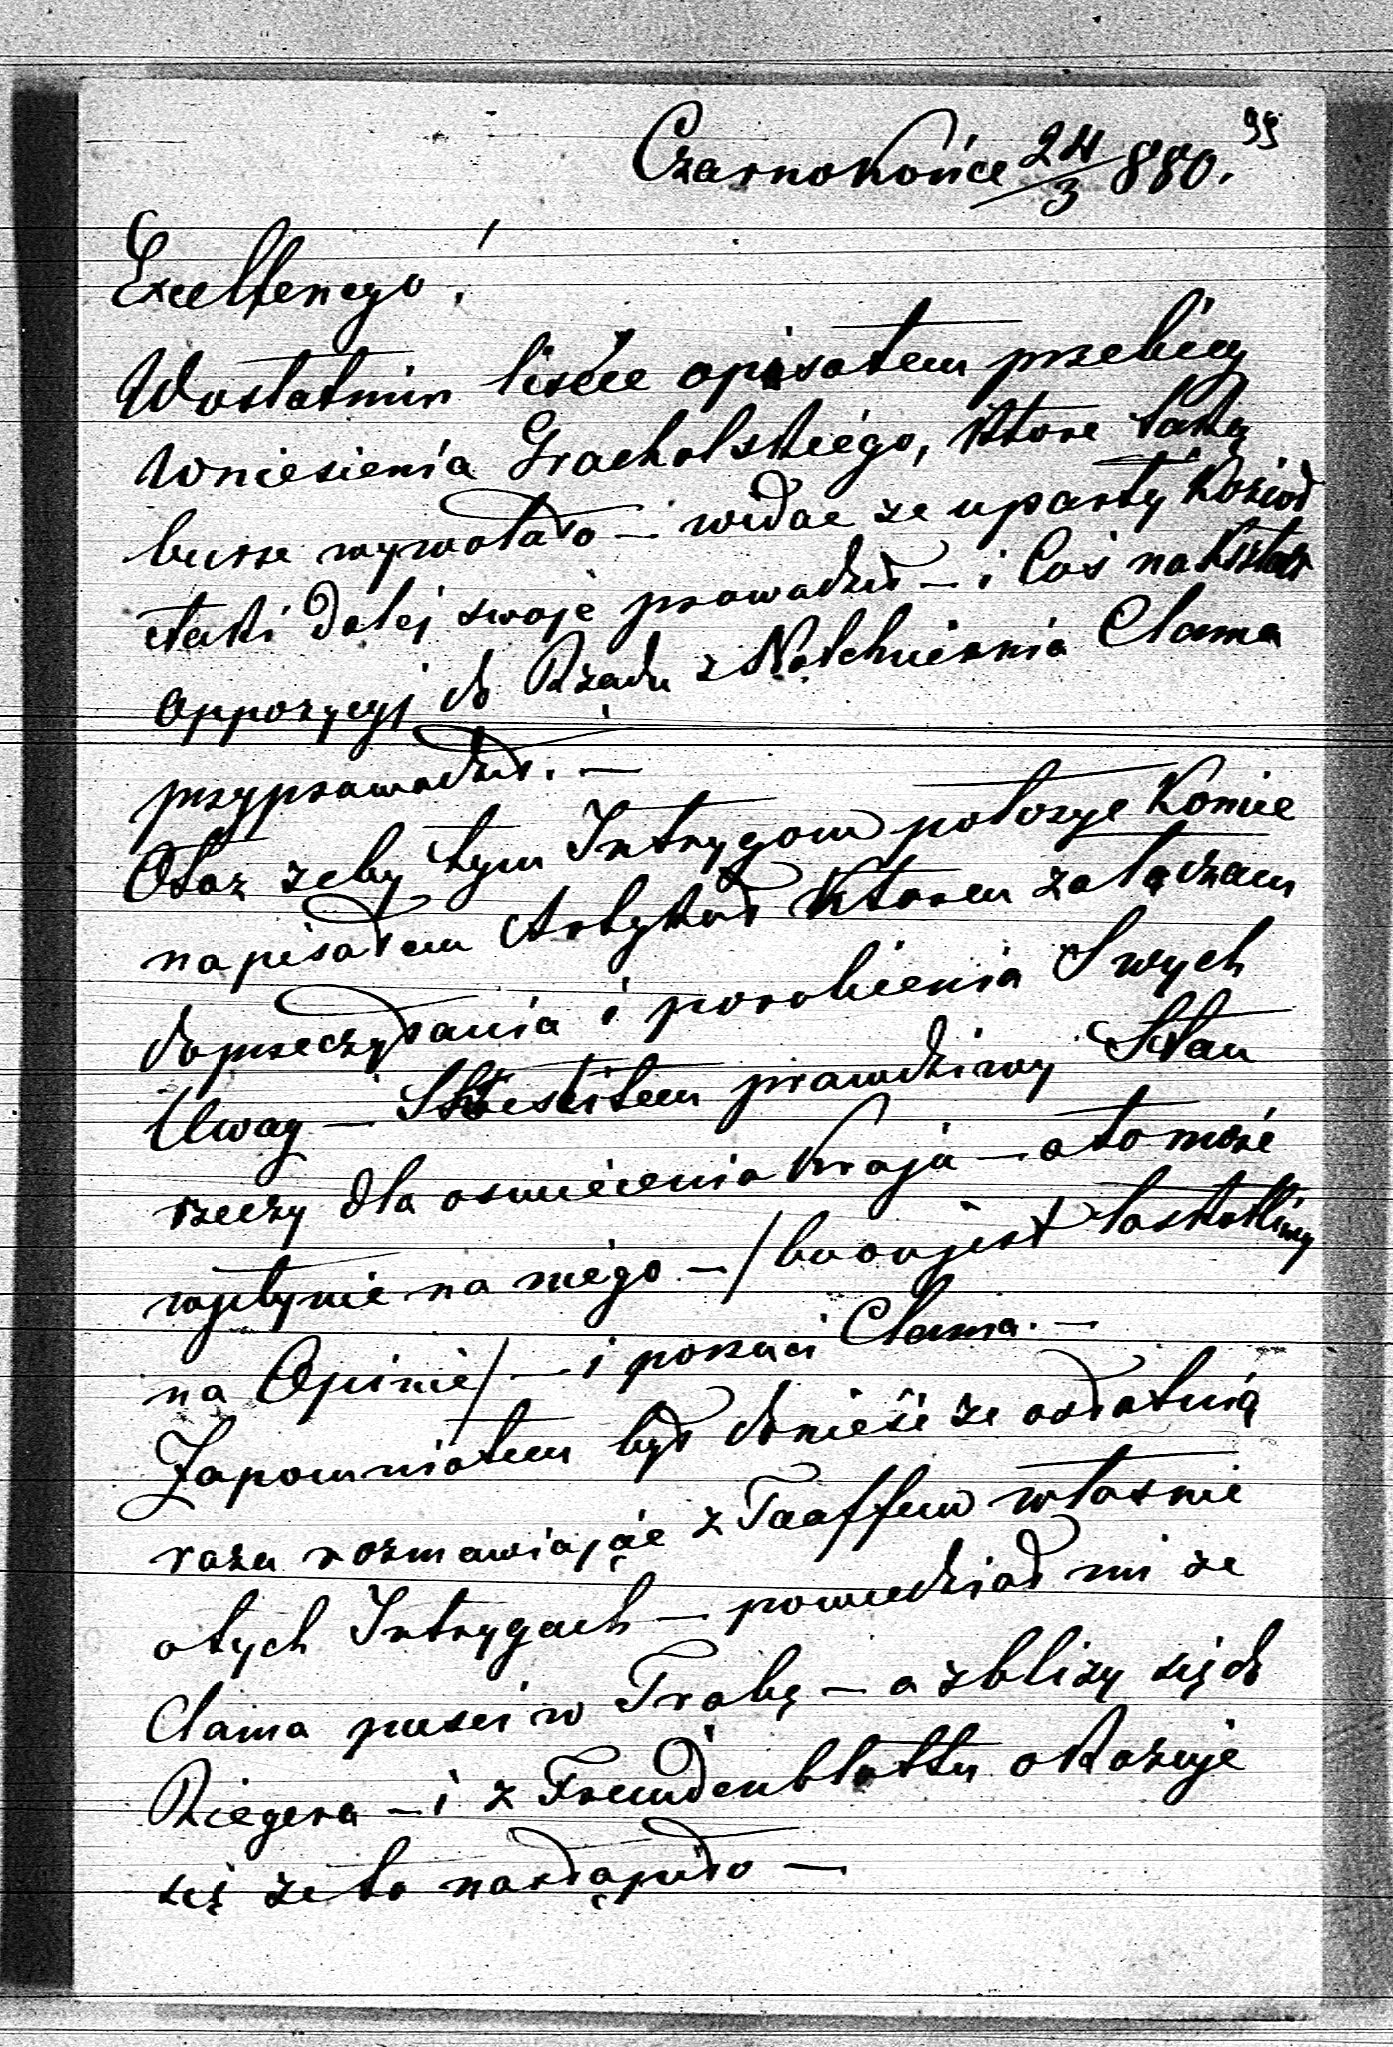 99
Czarnokońce 24/3 880.
Excellencyo!
W ostatnim liście opisałem przebieg
wniesienia Grocholskiego, które taką
burze wywołało – widac ze uparty Kozioł
taki dalej swoje prowadził – i Coś na Kształt
oppozycyj do Rządu z Natchnienia Clama
przyprowadził. –
Otoz zeby tym Intrygom położyc Koniec
napisałem Artykuł Ktoren załączam
do przeczytania i porobienia Swych
Uwag – Skreslilem prawdziwy Stan
rzeczy dla oswiecenia Kraju – a to może
wpłynie na niego – / bo on jest łaskotliwy
na Opinie / – i porzuci Clama. –
Zapomniałem był donieść ze ostatnią
razą rozmawiając z Taaffem własnie
o tych Intrygach – powiedział mi ze
Clama pusci w Trąbę – a zblizy się do
Riegera – i z Fremdenblattu okazuje
się ze to nastąpiło –